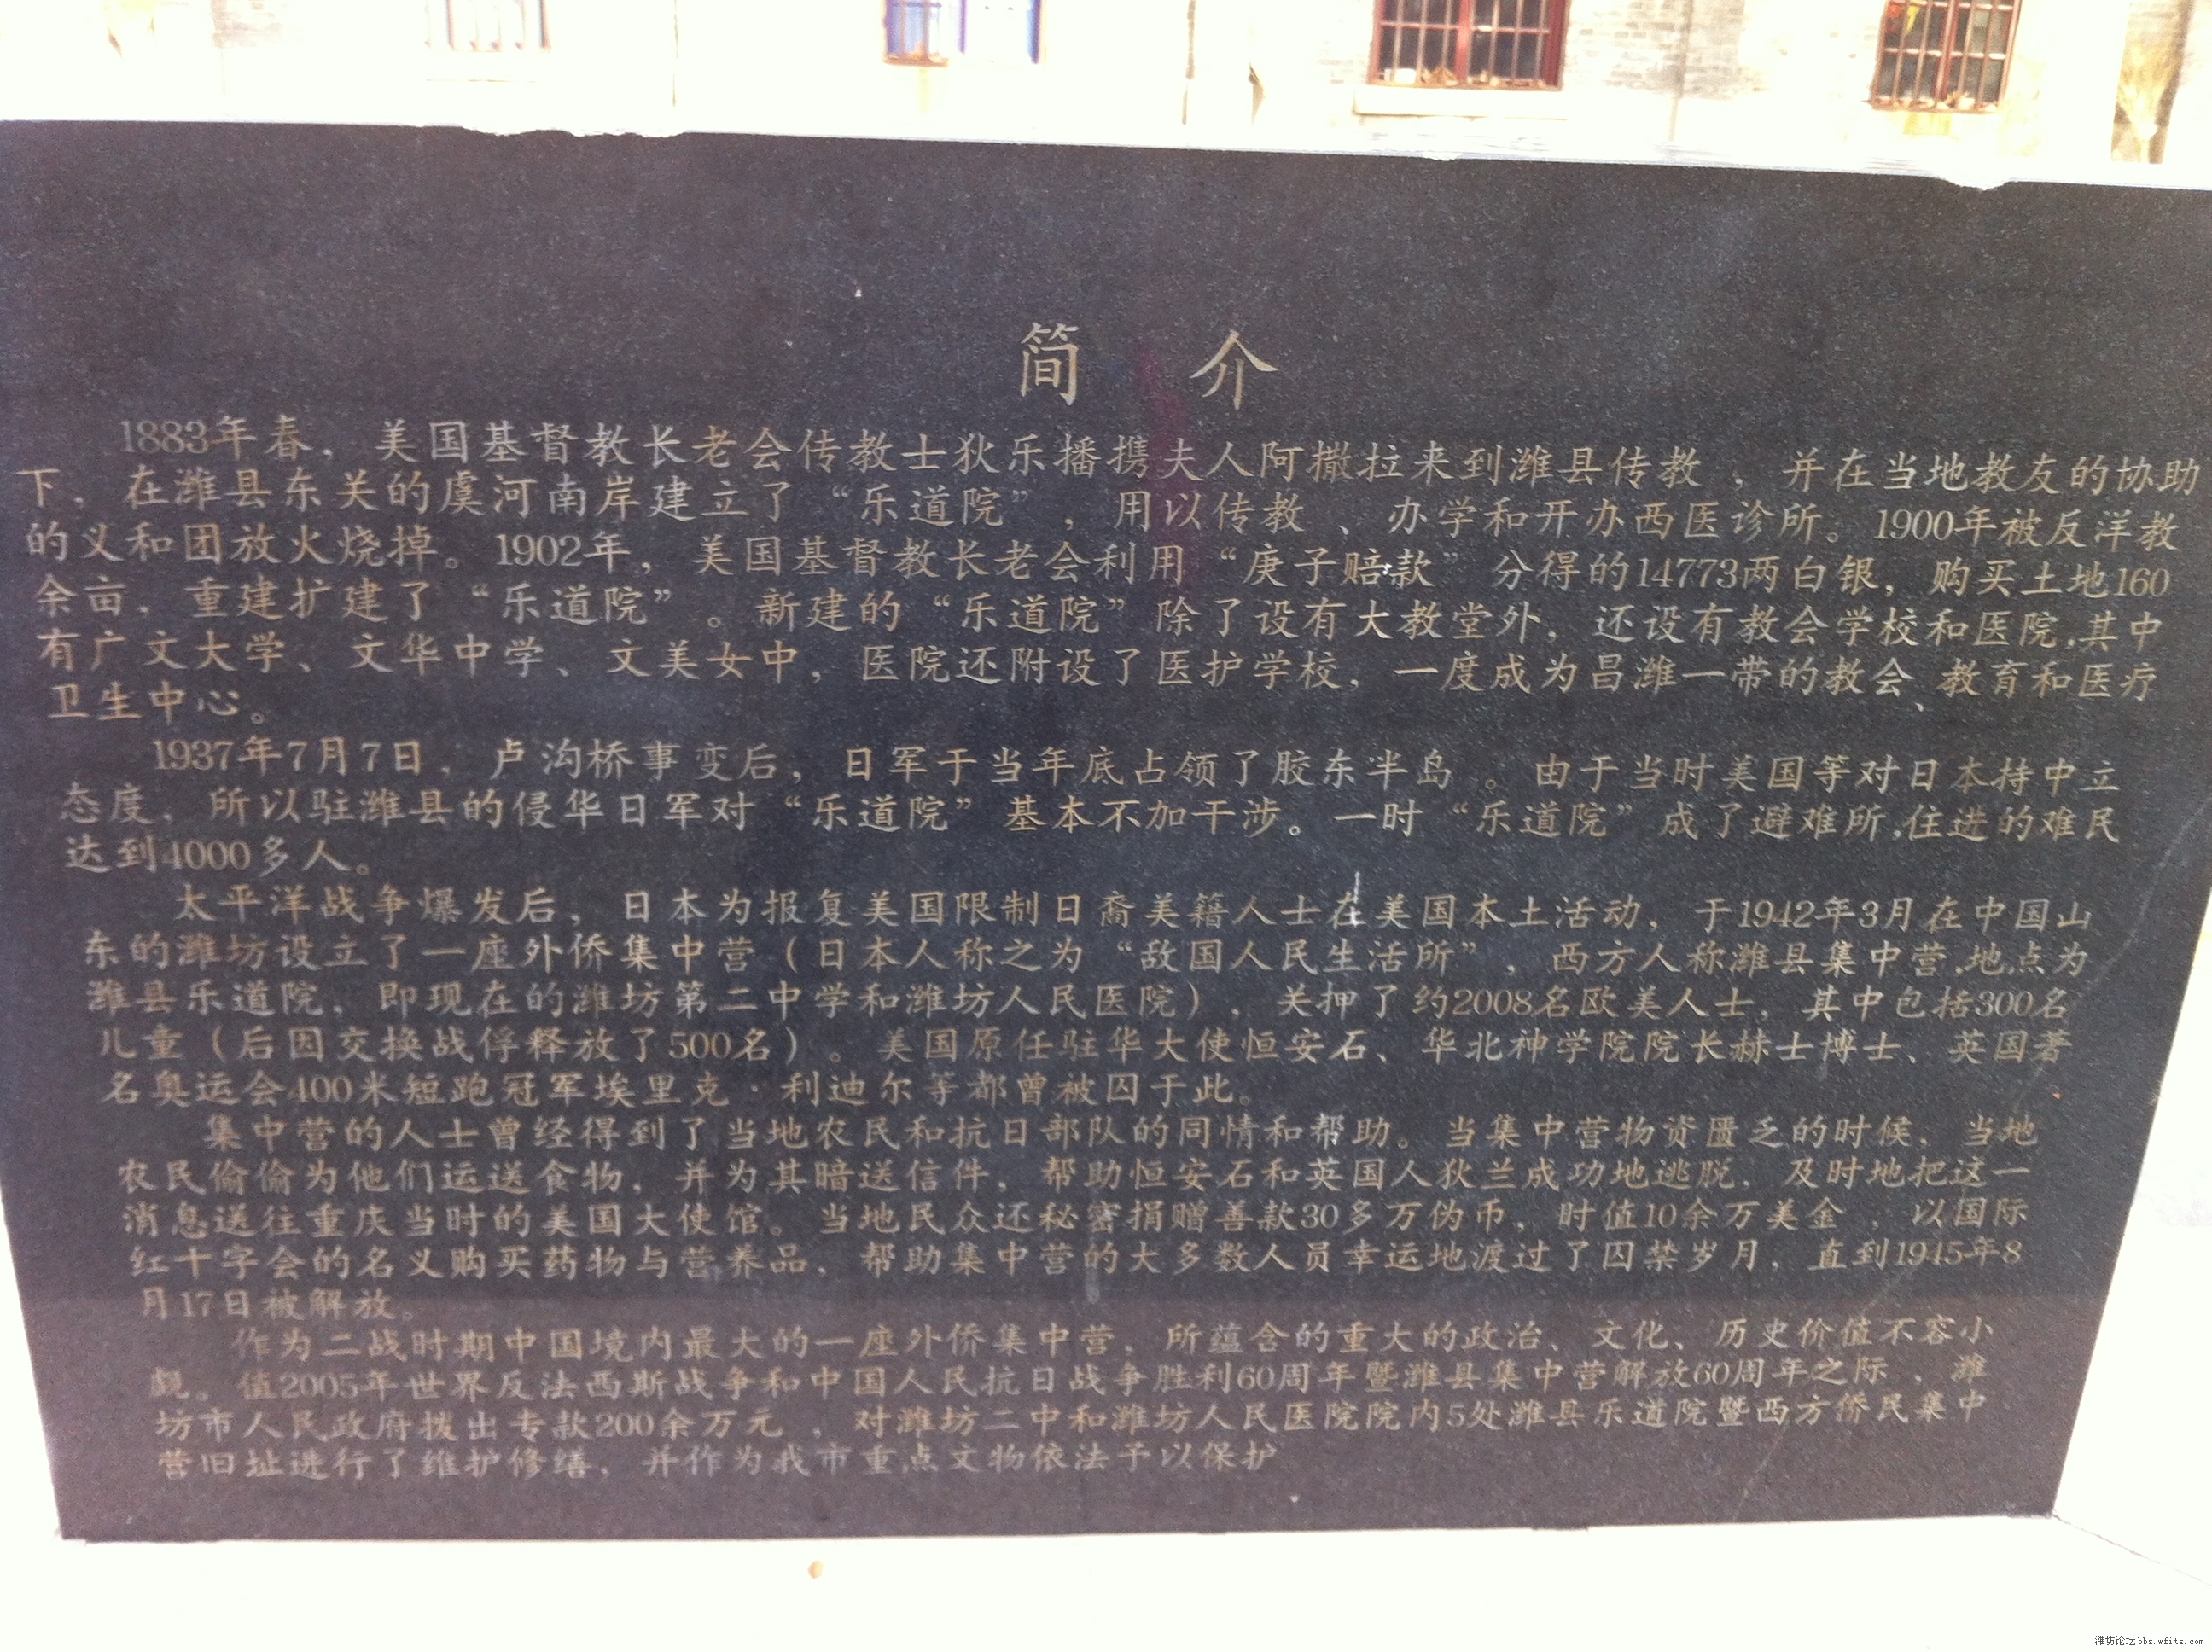 简 介
1883年春，美国基督教长老会传教士狄乐播携夫人阿撒拉来到潍县传教，并在当地教友的协助
下，在潍县东关的虞河南岸建立了“乐道院”，用以传教、办学和开办西医诊所。1900年被反洋教
的义和团放火烧掉。1902年，美国基督教长老会利用“庚子赔款”分得的14773两白银，购买土地160
余亩，重建扩建了“乐道院”。新建的“乐道院”除了设有大教堂外，还设有教会学校和医院，其中
有广文大学、文华中学、文美女中，医院还附设了医护学校，一度成为昌潍一带的教会、教育和医疗
卫生中心。
1937年7月7日，卢沟桥事变后，日军于当年底占领了胶东半岛。由于当时美国等对日本持中立
态度，所以驻潍县的侵华日军对“乐道院”基本不加干涉。一时“乐道院”成了避难所，住进的难民
达到4000多人。
太平洋战争爆发后，日本为报复美国限制日裔美籍人士在美国本土活动，于1942年3月在中国山
东的潍坊设立了一座外侨集中营（日本人称之为“敌国人民生活所”，西方人称潍县集中营，地点为
潍县乐道院，即现在的潍坊第二中学和潍坊人民医院），关押了约2008名欧美人士，其中包括300名
儿童（后因交换战俘释放了500名）。美国原任驻华大使恒安石、华北神学院院长赫士博士、英国著
名奥运会400米短跑冠军埃里克·利迪尔等都曾被囚于此。
集中营的人士曾经得到了当地农民和抗日部队的同情和帮助。当集中营物资匮乏的时候，当地
农民偷偷为他们运送食物，并为其暗送信件，帮助恒安石和英国人狄兰成功地逃脱，及时地把这一
消息送往重庆当时的美国大使馆。当地民众还秘密捐赠善款30多万伪币，时值10余万美金，以国际
红十字会的名义购买药物与营养品，帮助集中营的大多数人员幸运地渡过了囚禁岁月，直到1945年8
月17日被解放。
作为二战时期中国境内最大的一座外侨集中营，所蕴含的重大的政治、文化、历史价值不容小
觑。值2005年世界反法西斯战争和中国人民抗日战争胜利60周年暨潍县集中营解放60周年之际，潍
坊市人民政府拨出专款200余万元，对潍坊二中和潍坊人民医院院内5处潍县乐道院暨西方侨民集中
营旧址进行了维护修缮，并作为我市重点文物依法予以保护
潍坊论坛bbs.wfits.com